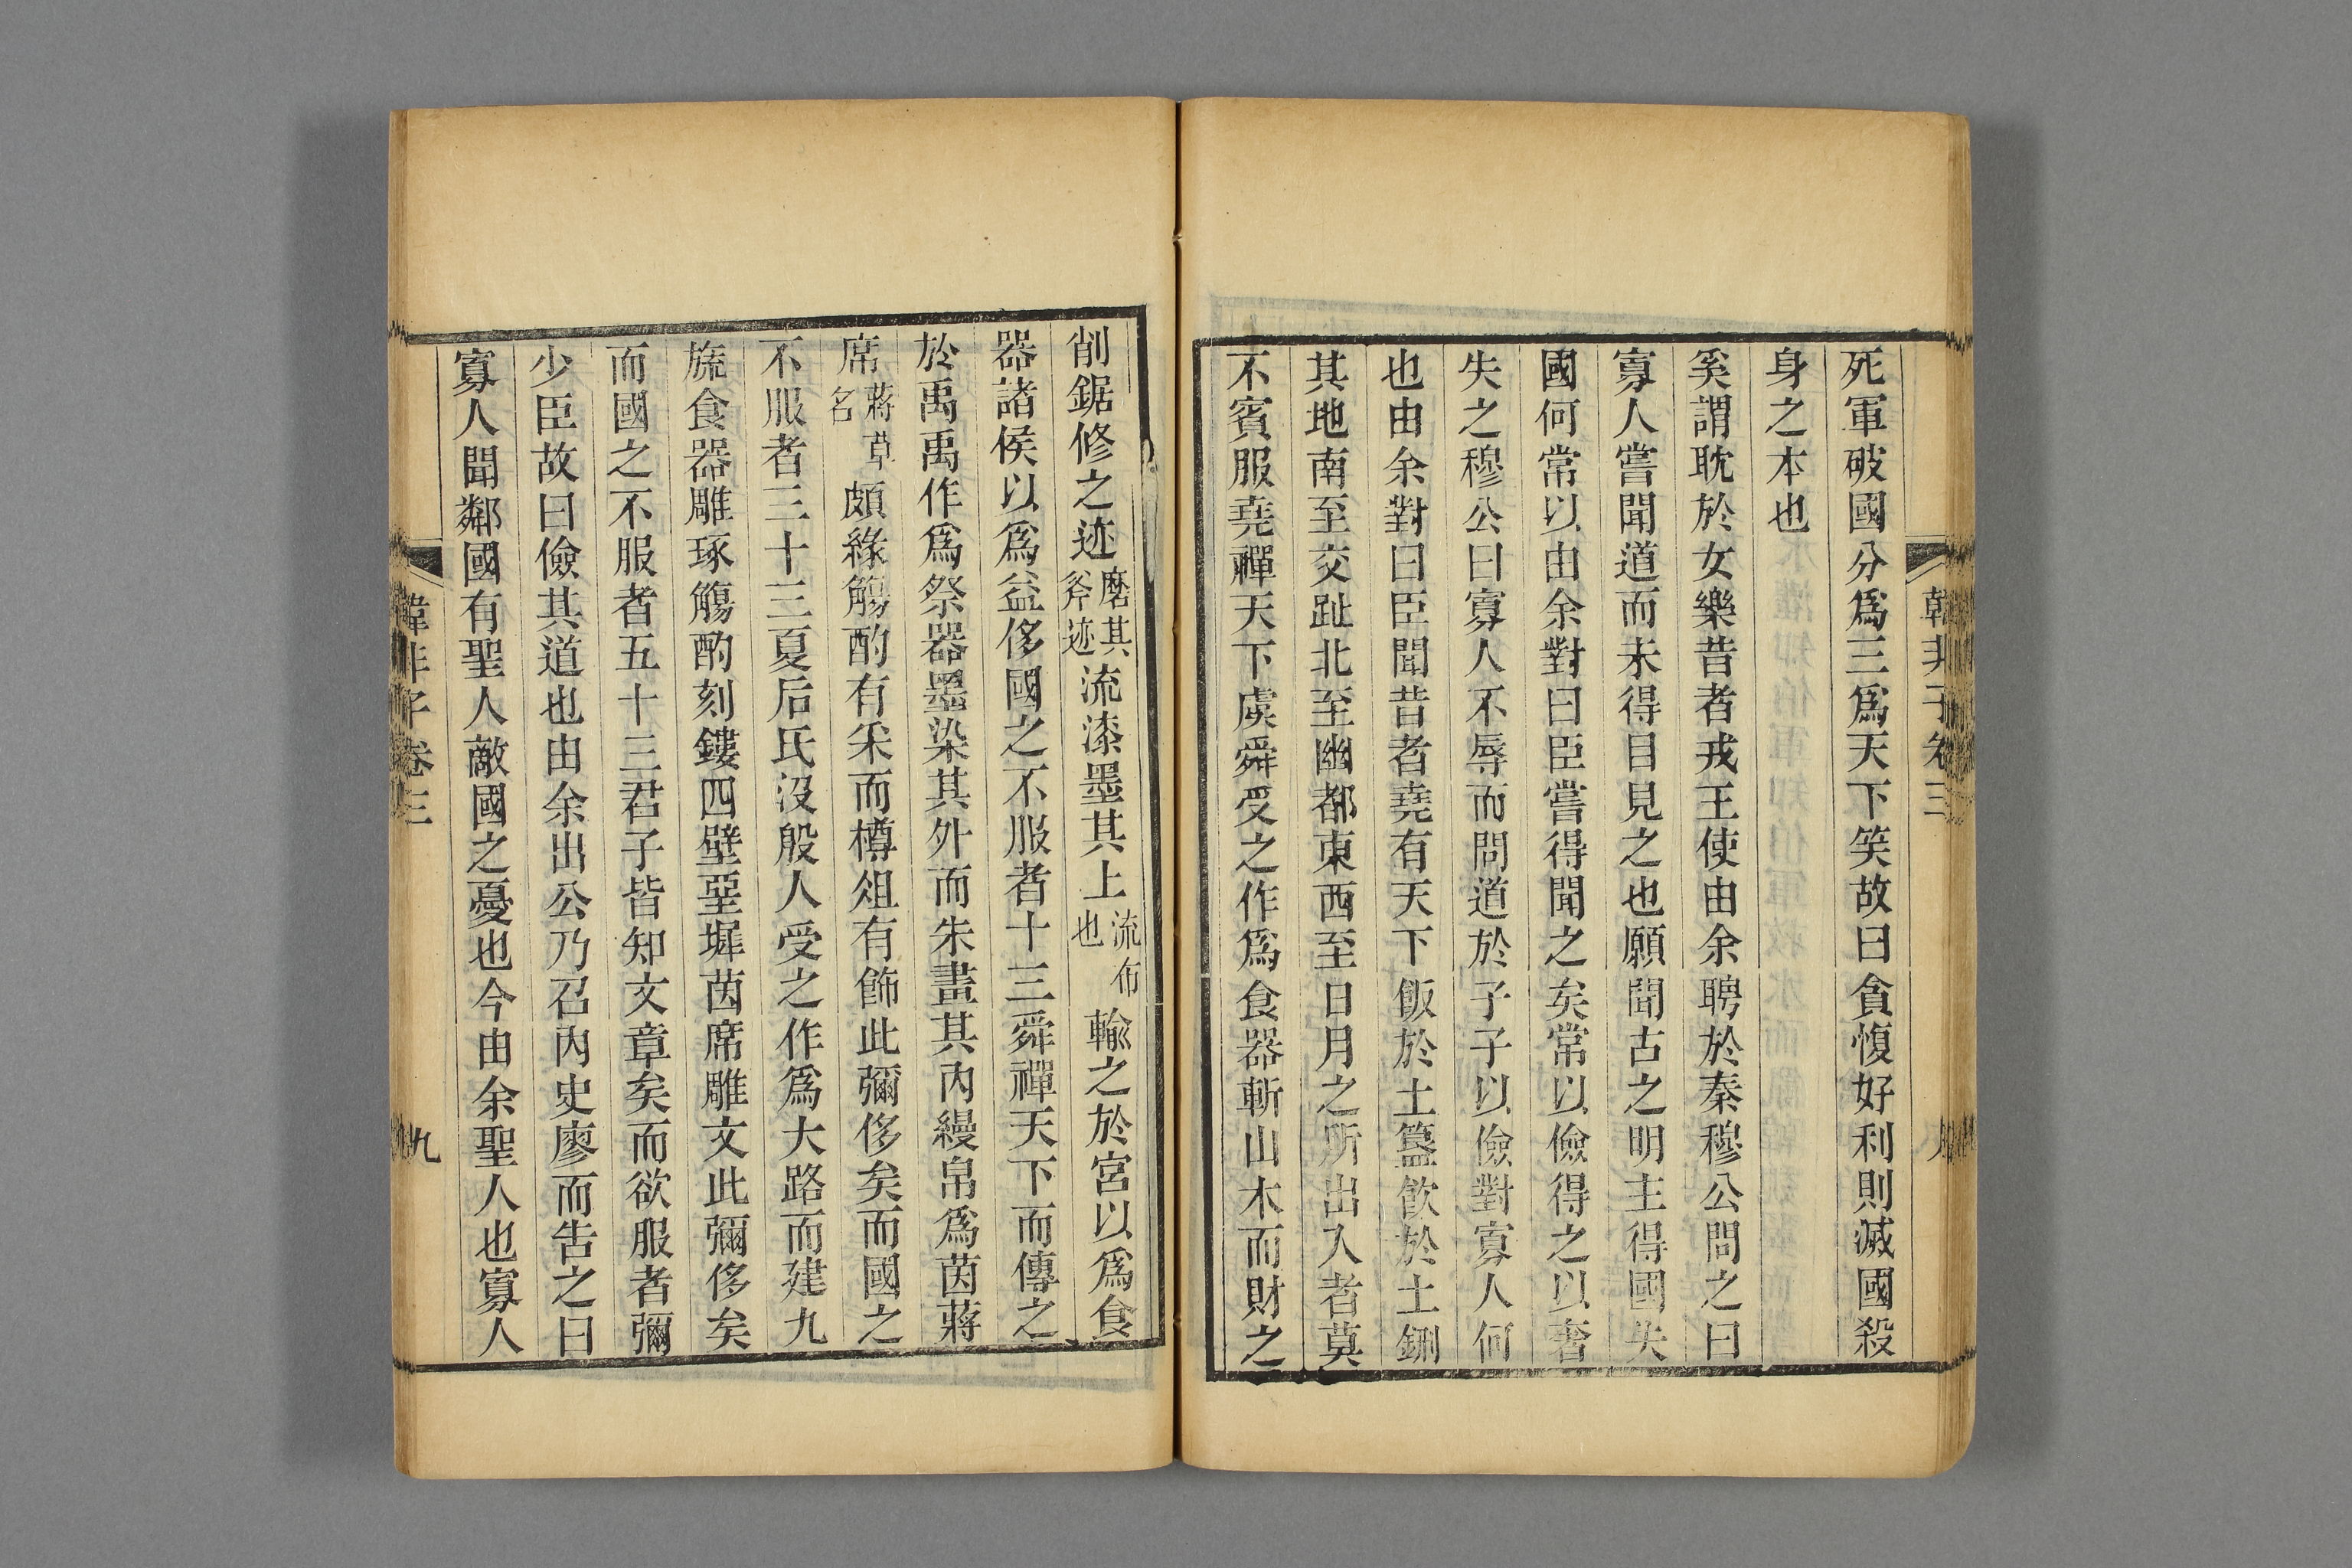 韓非子卷三
死軍破國分爲三爲天下笑故曰貪愎好利則滅國殺
身之本也
奚謂耽於女樂昔者戎王使由余聘於秦穆公問之曰
寡人嘗聞道而未得目見之也願聞古之明主得國失
國何常以由余對曰臣嘗得聞之矣常以儉得之以奢
失之穆公曰寡人不辱而問道於子子以儉對寡人何
也由余對曰臣聞昔者堯有天下飯於土簋飮於土鉶
其地南至交趾北至幽都東西至日月之所出入者莫
不賓服堯禪天下虞舜受之作爲食器斬山木而財之
削鋸修之迹磨其斧迹流漆墨其上流布也輸之於宮以爲食
器諸侯以爲益侈國之不服者十三舜禪天下而傳之
於禹禹作爲祭器墨染其外而朱畫其內縵帛爲茵蔣
席蔣草名頗緣觴酌有采而樽俎有飾此彌侈矣而國之
不服者三十三夏后氏沒殷人受之作爲大路而建九
旒食器雕琢觴酌刻鏤四壁堊墀茵席雕文此彌侈矣
而國之不服者五十三君子皆知文章矣而欲服者彌
少臣故曰儉其道也由余出公乃召內史廖而告之曰
寡人聞鄰國有聖人敵國之憂也今由余聖人也寡人
韓非子卷三
九